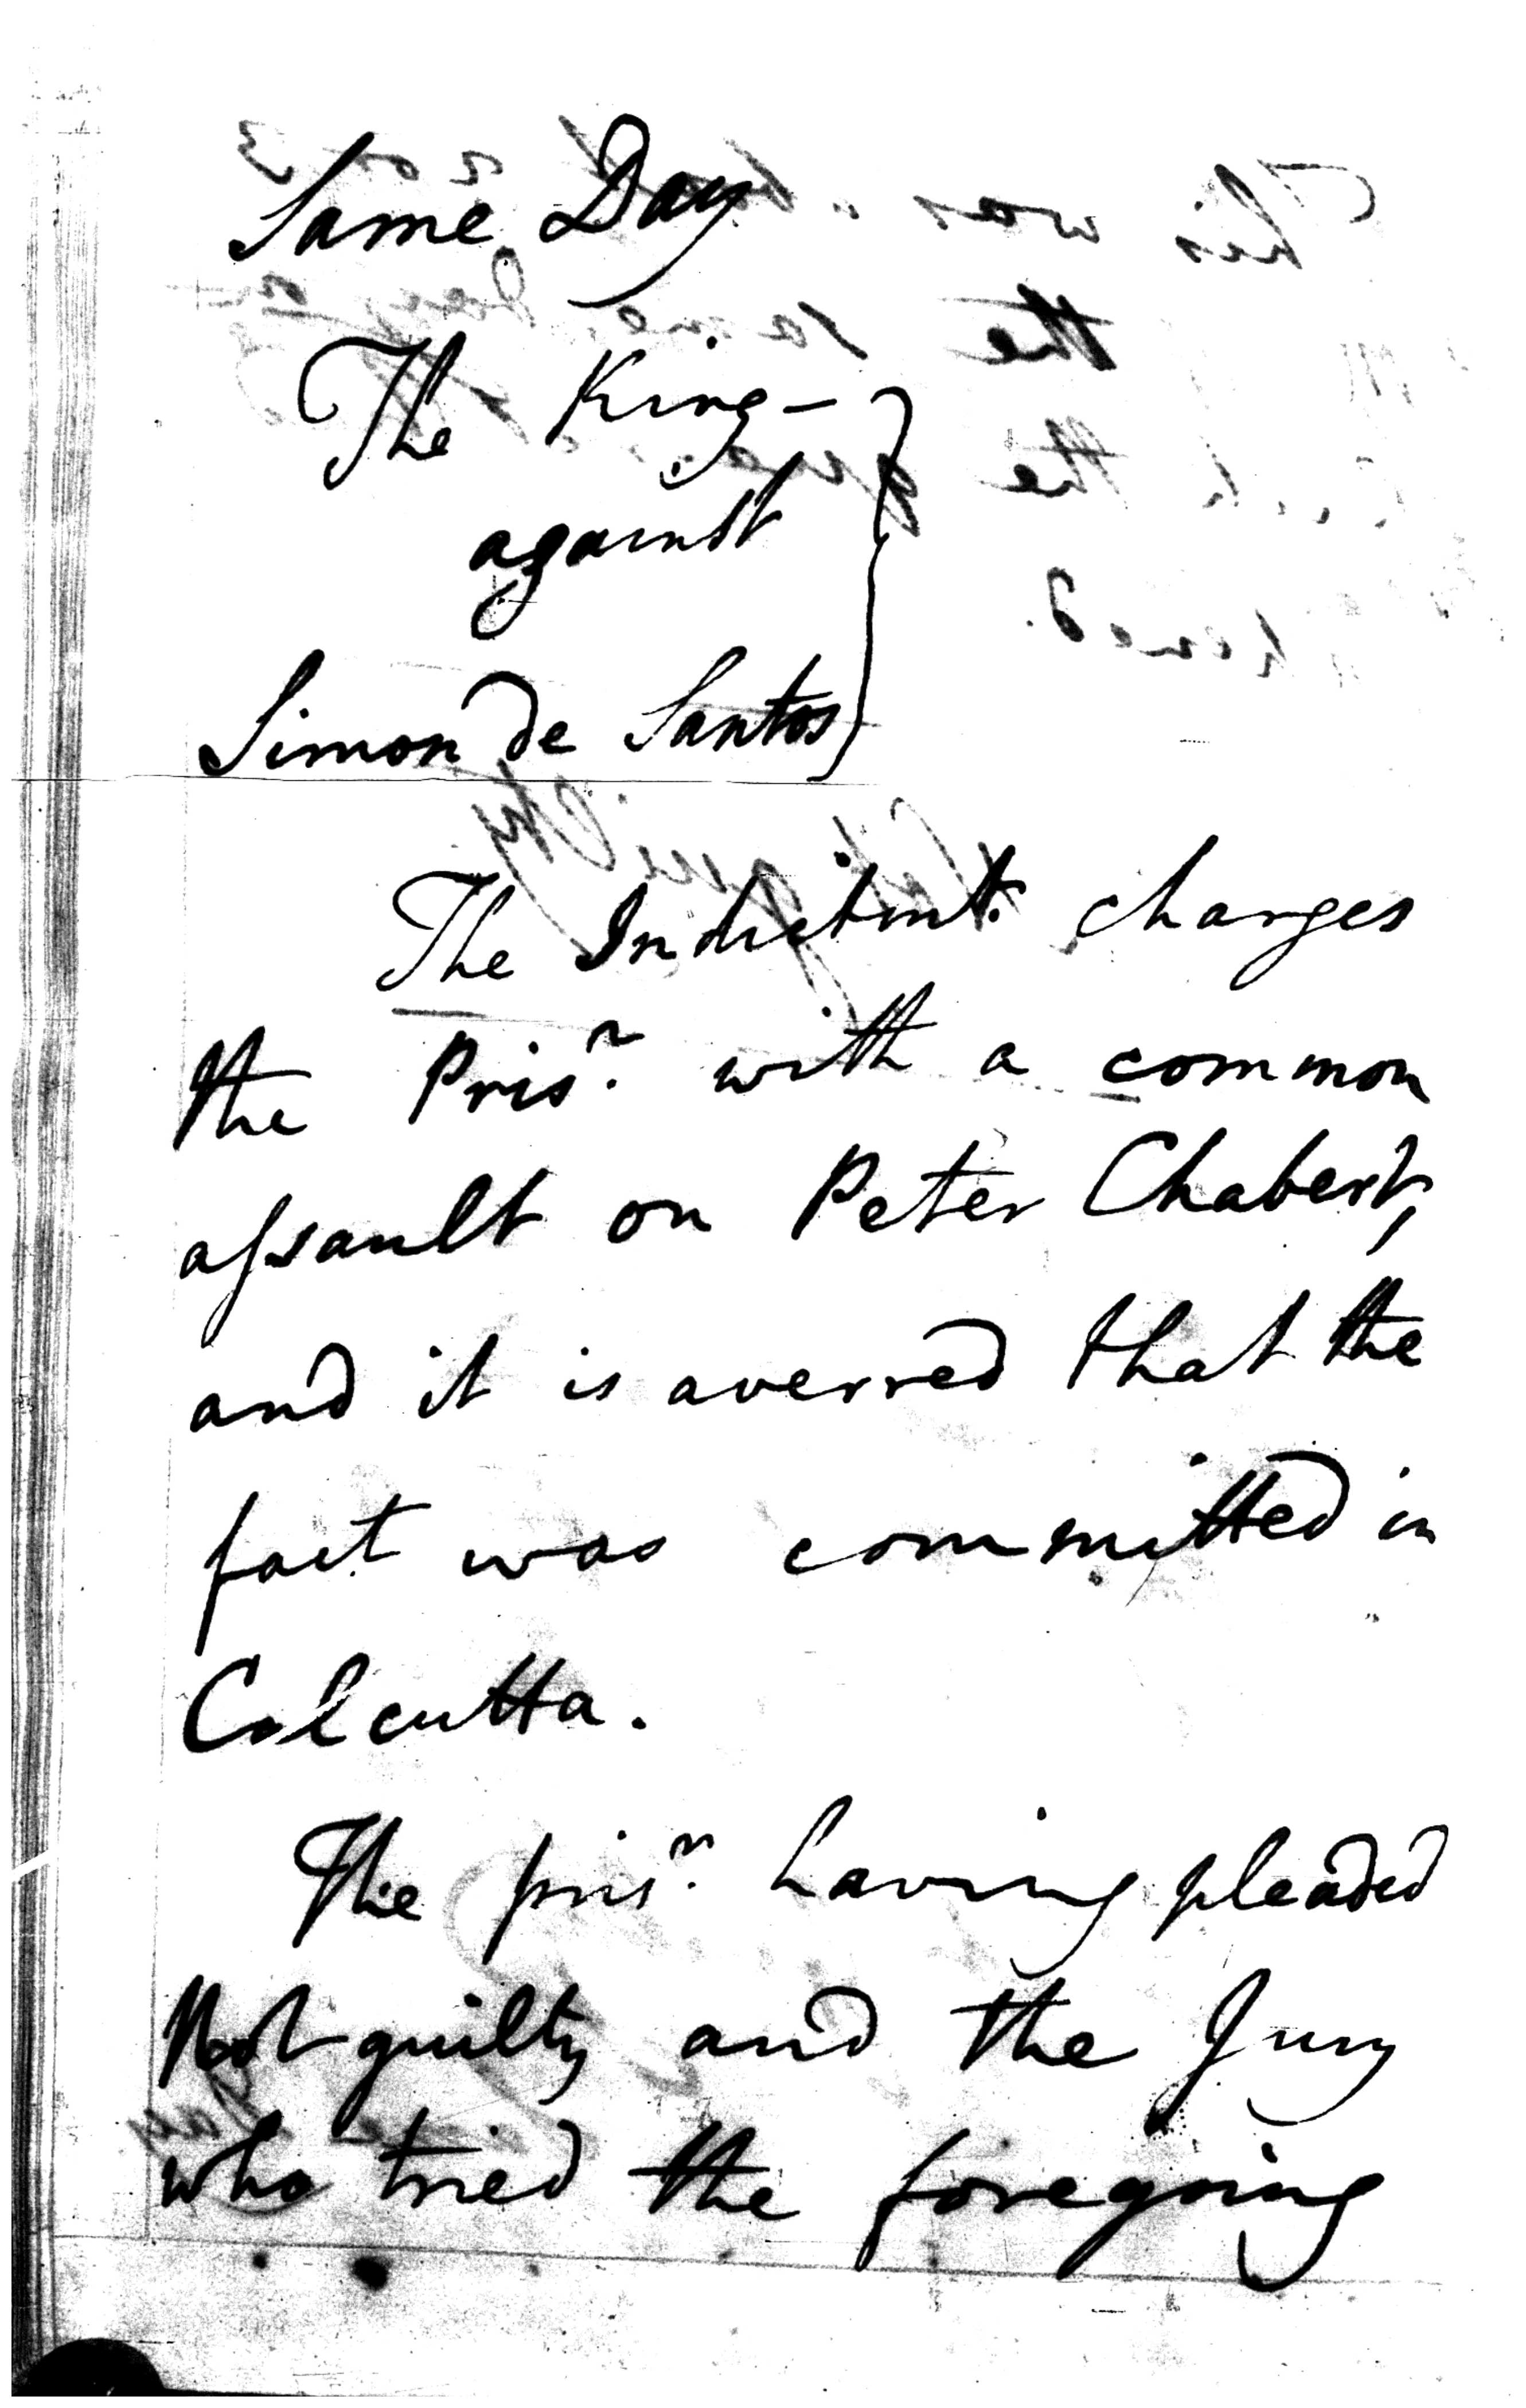 Same Day
The King —
against
Simon de Santos
The Indictmt. charges
the Prisr. with a common
assault on Peter Chabert,
and it is averred that the
fact was committed in
Calcutta.
The prisr. having pleaded
Not guilty and the Jury
who tried the foregoing